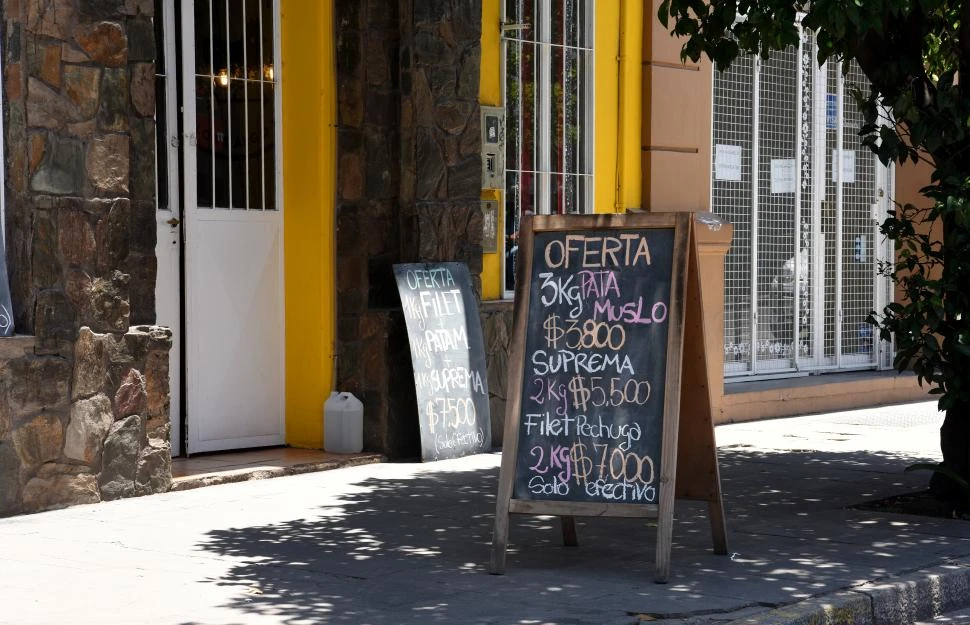 OFERTA
1Kg FILET
+
1Kg PATAM.
+
1Kg SUPREMA
$7500
(Solo efectivo)
OFERTA
3Kg PATA
MUSLO
$3800
SUPREMA
2Kg $5.500
Filet Pechuga
2Kg $7.000
Solo efectivo